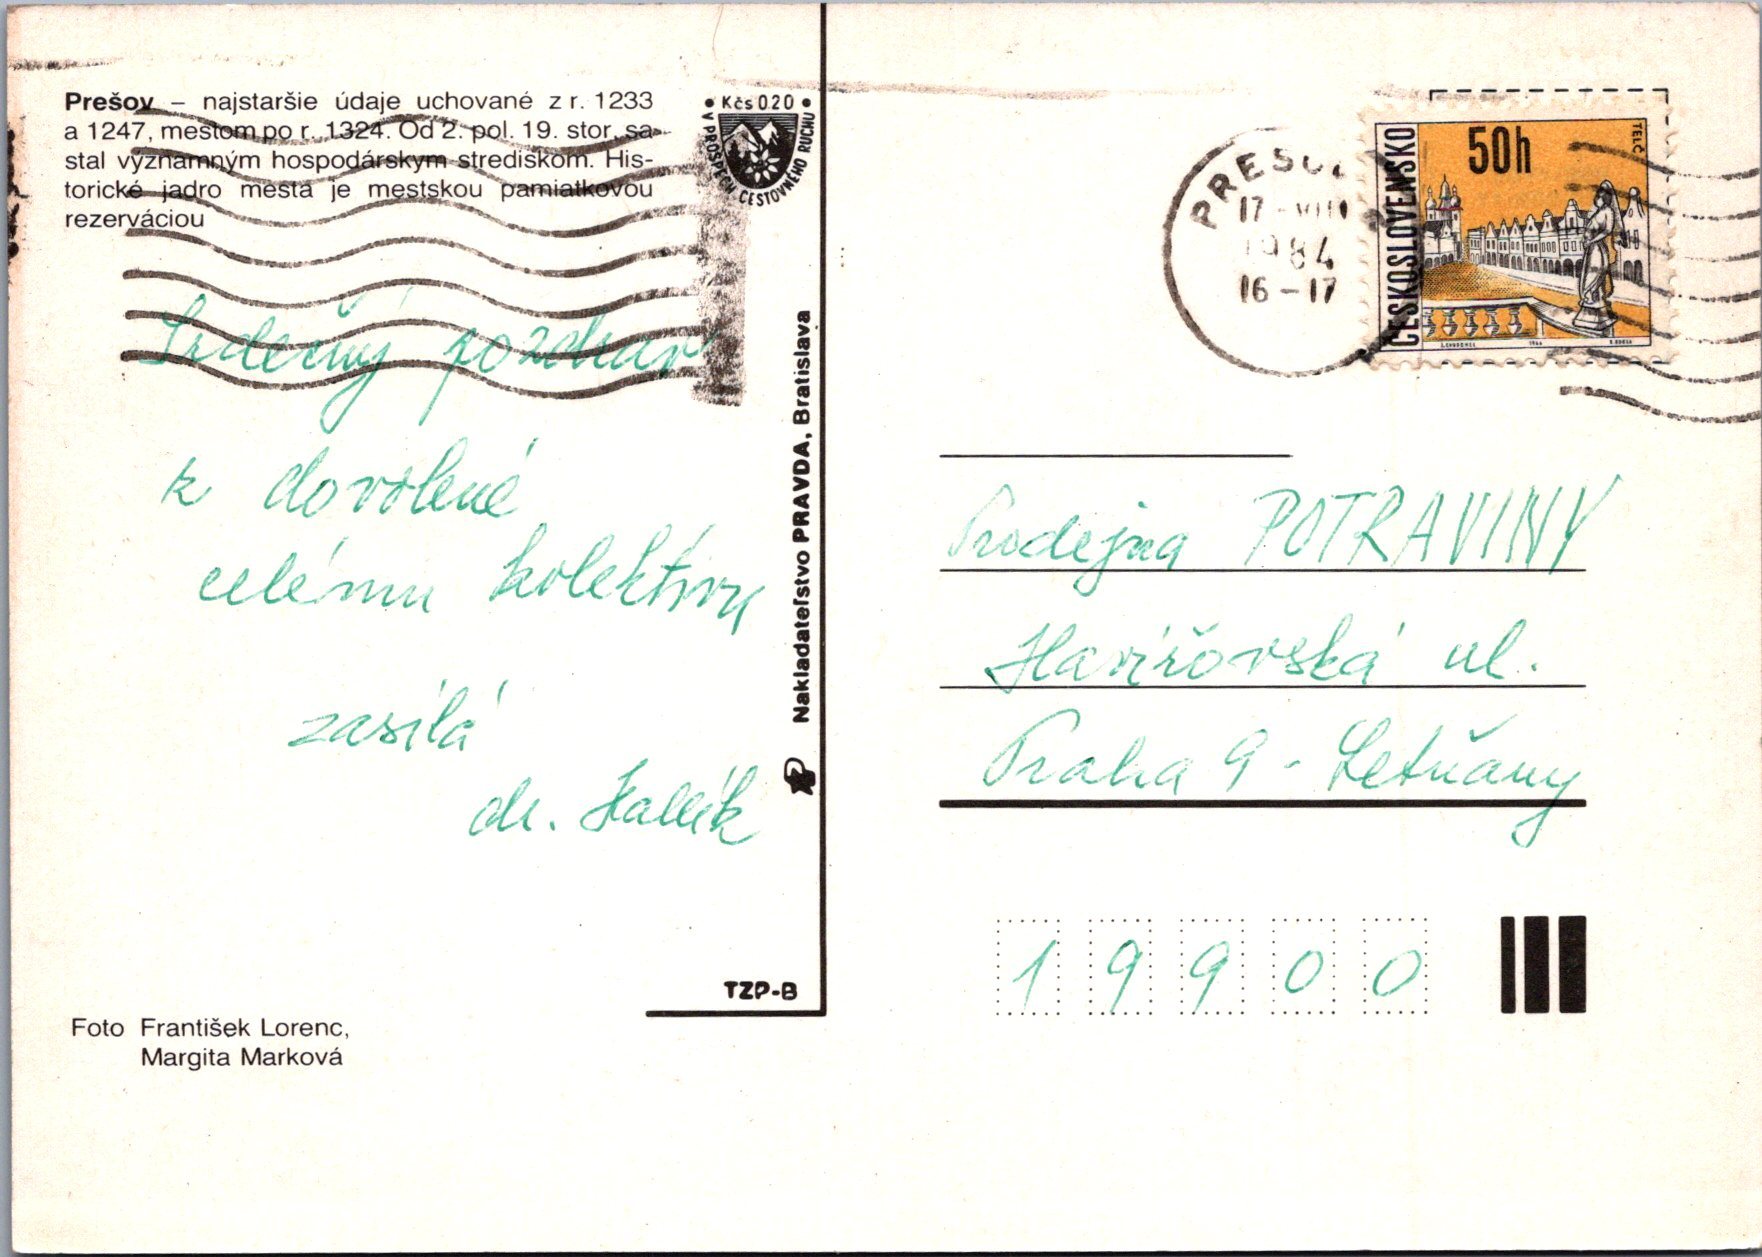 Prešov – najstaršie údaje uchované z r. 1233
a 1247, mestom po r. 1324. Od 2. pol. 19. stor. sa
stal významným hospodárskym strediskom. His-
torické jadro mesta je mestskou pamiatkovou
rezerváciou
• Kčs 0.20 •
V PROSPECH CESTOVNÉHO RUCHU
Srdečný pozdrav
z dovolené
celému kolektivu
zasílá
dr.
Nakladateľstvo PRAVDA, Bratislava
TZP-B
Foto František Lorenc,
Margita Marková
PREŠOV
17-VIII
1984
16-17
ČESKOSLOVENSKO
50h
TELČ
1966
Prodejna POTRAVINY
Havířovská ul.
Praha 9 - Letňany
19900